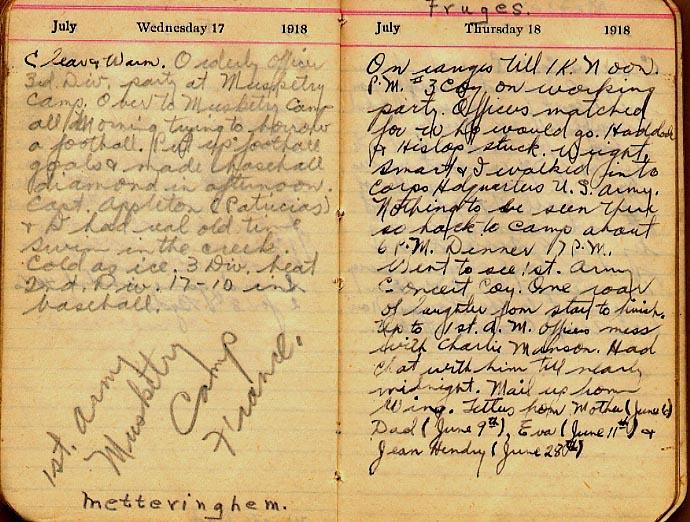 July Wednesday 17 1918
Clear & Warm. Orderly officer
3rd Div. party at Musketry
Camp. Over to Musketry Camp
all Morning trying to borrow
a football. Put up football
goals & made baseball
diamond in afternoon.
Capt. Appleton (Patricias)
& I had real old time
swim in the creek.
Cold as ice. 3 Div. beat
2nd. Div. 17-10 in
baseball.
1st. Army
Musketry
Camp
France.
Metteringhem.
Fruges.
July Thursday 18 1918
On ranges till 12 Noon.
P.M. #3 Coy on working
party. Officers matched
for who would go. Haddock
& Hislop stuck. Wright,
Smart & I walked into
Corps Hdquarters U.S. Army.
Nothing to be seen there
so back to Camp about
6 P.M. Dinner 7 P.M.
Went to see 1st. Army
Concert Coy. One roar
of laughter from start to finish.
Up to 1st. A. M. officers mess
with Charlie Manson. Had
chat with him till nearly
midnight. Mail up from
Wing. Letters from Mother (June 6)
Dad (June 9th), Eva (June 11th) &
Jean Hendry (June 28th)